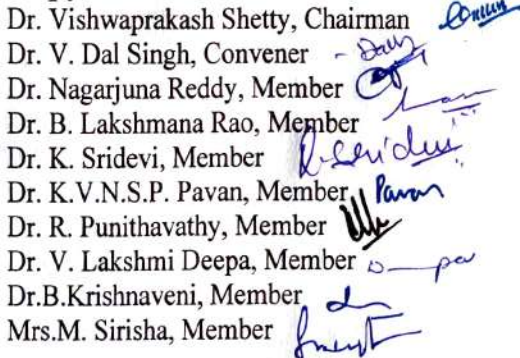 Dr. Vishwaprakash Shetty, Chairman
Dr. V. Dal Singh, Convener
Dr. Nagarjuna Reddy, Member
Dr. B. Lakshmana Rao, Member
Dr. K. Sridevi, Member K. Sridevi
Dr. K.V.N.S.P. Pavan, Member Pavan
Dr. R. Punithavathy, Member
Dr. V. Lakshmi Deepa, Member
Dr.B.Krishnaveni, Member
Mrs.M. Sirisha, Member